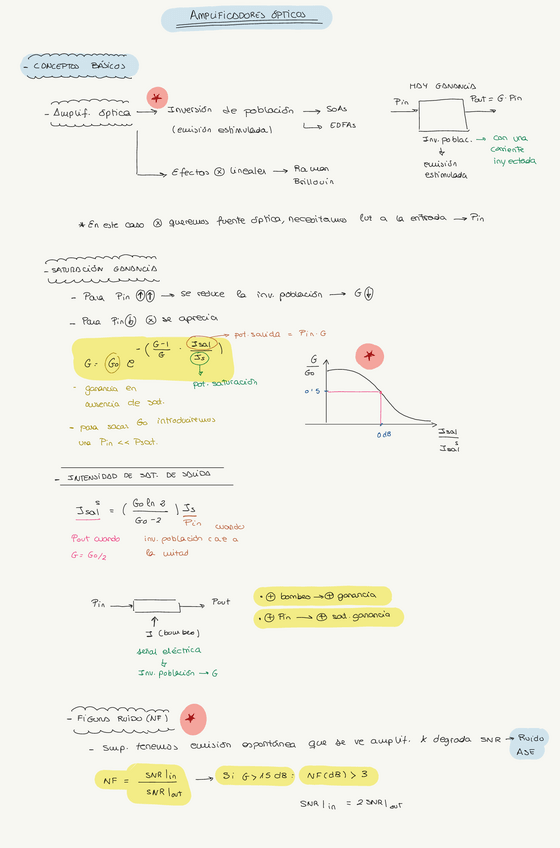 AMPLIFICADORES ÓPTICOS
- CONCEPTOS BÁSICOS
HAY GANANCIA
- Amplif. óptica → Inversión de población → SOAs
(emisión estimulada) → EDFAs
Pin → Pout = G·Pin
Inv. poblac. → con una corriente inyectada
↓
emisión estimulada
→ Efectos ⊗ lineales → Raman
Brillouin
* En este caso ⊗ queremos fuente óptica, necesitamos luz a la entrada → Pin
- SATURACIÓN GANANCIA
- Para Pin ↑↑ → se reduce la inv. población → G ↓
- Para Pin ↓ ⊗ se aprecia
G = G0 e^-( (G-1)/G · Isal/Is )
→ pot. salida = Pin·G
pot. saturación
· ganancia en
ausencia de sat.
- para sacar G0 introducimos
una Pin << Psat.
G/G0
0'5
0dB
Isal/Isal^s
- INTENSIDAD DE SAT. DE SALIDA
Isal^s = ( G0 ln 2 / G0-2 ) Is
Pout cuando
G = G0/2
Pin cuando
inv. población cae a
la mitad
Pin → Pout
↑
I (bombeo)
señal eléctrica
↓
Inv. población → G
· ⊕ bombeo → ⊕ ganancia
· ⊕ Pin → ⊕ sat. ganancia
- FIGURA RUIDO (NF)
- Sup. tenemos emisión espontánea que se ve amplif. * degrada SNR → Ruido
ASE
NF = SNR|in / SNR|out → Si G > 15 dB : NF(dB) > 3
SNR|in = 2SNR|out